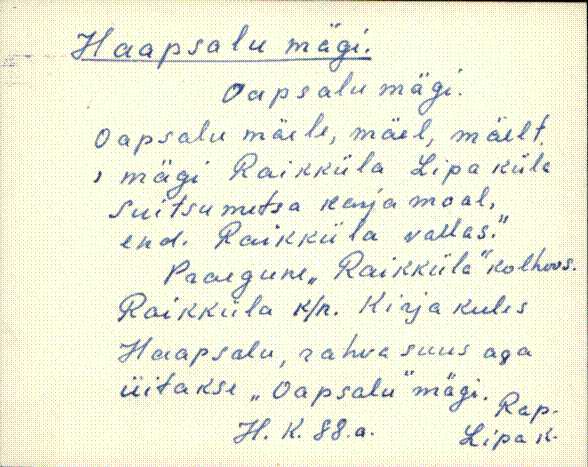 Haapsalu mägi.
Oapsalu mägi.
Oapsalu mäele, mäel, mäelt.
, mägi Raikküla Lipa küla
Suitsumetsa karja maal,
end. Raikküla vallas."
Praegune „Raikküla" kolhoos.
Raikküla k/n. Kirja kules
Haapsalu, rahva suus aga
üitakse „Oapsalu" mägi.
Rap.
H. K. 88. a.
Lipa k.